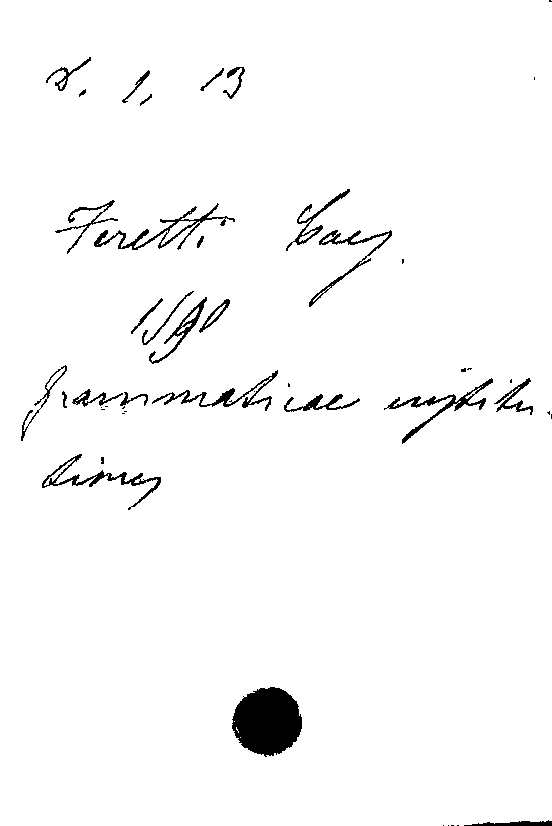 1, 13
Feretti Caes.
Grammaticae institu-
tiones